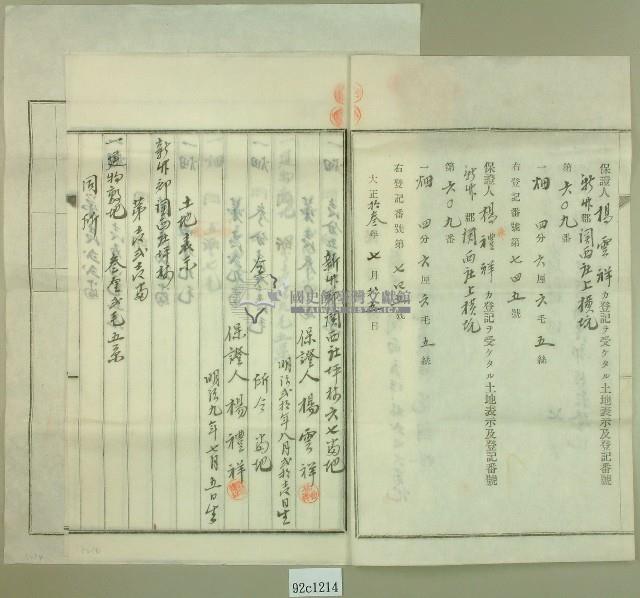 保證人楊雲祥カ登記ヲ受ケタル土地表示及登記番號
新竹郡関西庄上横坑
第六〇九番
一畑 四分六厘六毛五絲
右登記番號第七四五號
保證人楊禮祥カ登記ヲ受ケタル土地表示及登記番號
新竹郡関西庄上横坑
第六〇九番
一畑 四分六厘六毛五絲
右登記番號第
大正拾叁年七月
新竹郡関西庄坪林六七番地
保證人楊雲祥
明治弐拾年八月弐拾壱日生
所今番地
保證人楊禮祥
明治九年七月五日生
土地表示
新竹郡関西庄坪林
第壱弐壱番
一建物敷地 叁厘弐毛五絲
同所
國史館臺灣文獻館
TAIWAN HISTORICA
92c1214